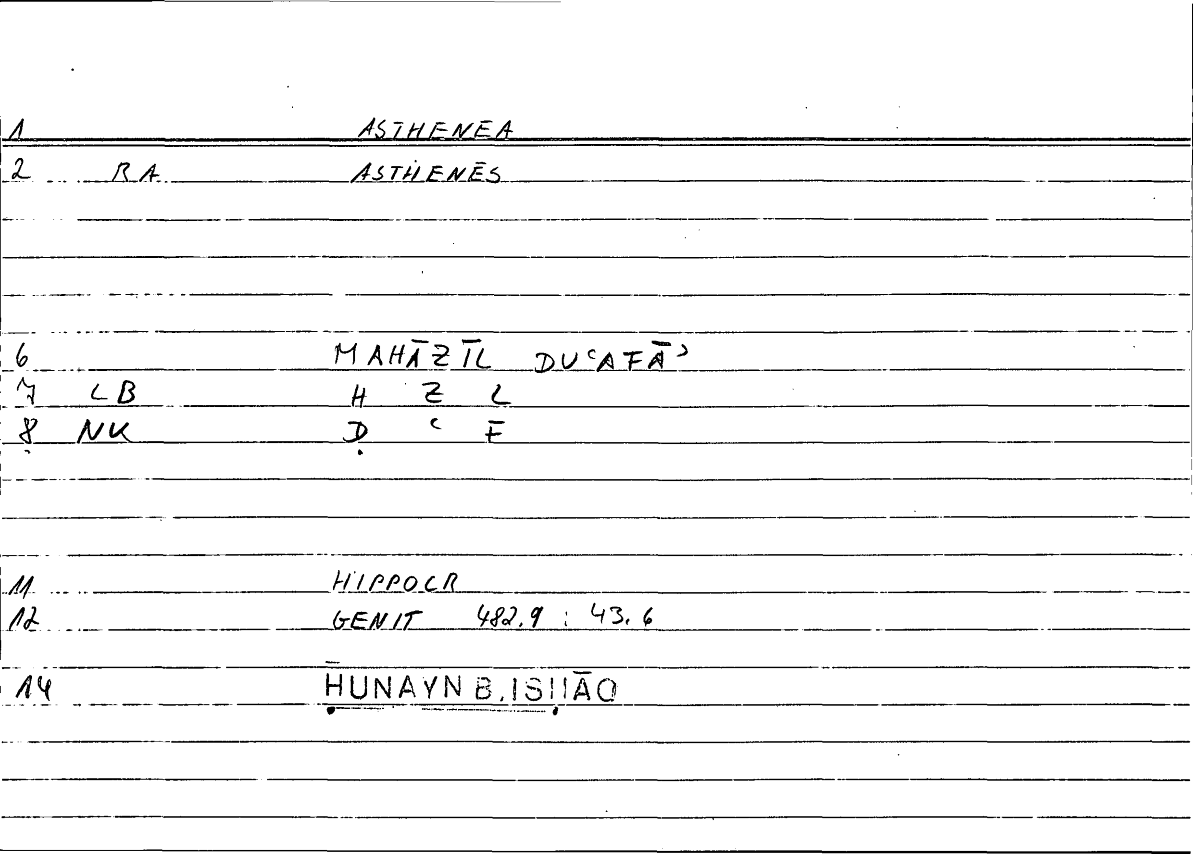 1 ASTHENEA
2 RA ASTHENĒS
6 MAHĀZĪL DUʿAFĀʾ
7 LB H Z L
8 NK Ḍ ʿ F
11 HIPPOCR
12 GENIT 482.9 : 43.6
14 ḤUNAYN B. ISḤĀQ